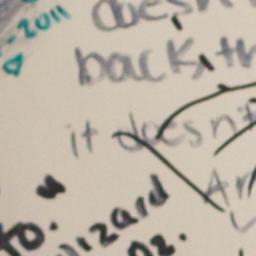 -2011
does
back, th
it doesn't
to.
wizard
oz.